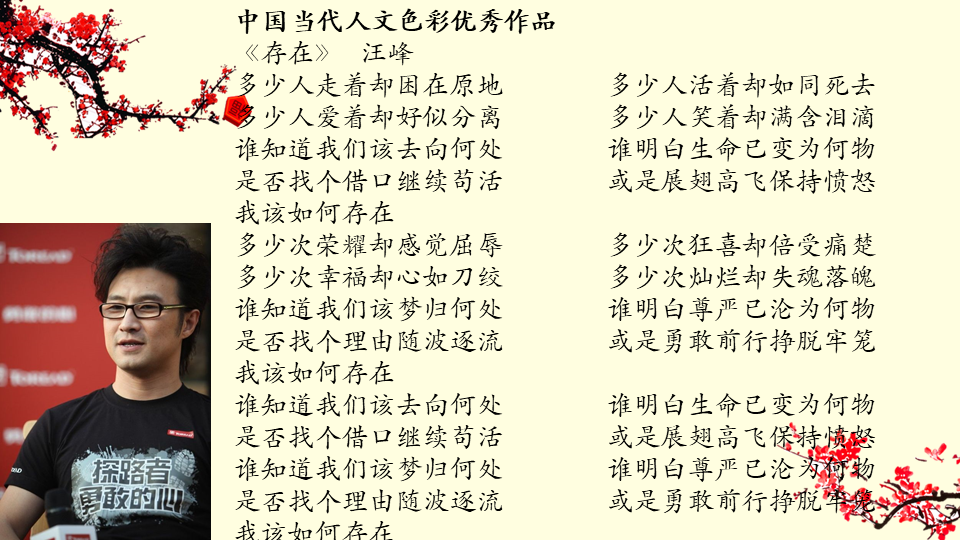 中国当代人文色彩优秀作品
《存在》 汪峰
多少人走着却困在原地 多少人活着却如同死去
多少人爱着却好似分离 多少人笑着却满含泪滴
谁知道我们该去向何处 谁明白生命已变为何物
是否找个借口继续苟活 或是展翅高飞保持愤怒
我该如何存在
多少次荣耀却感觉屈辱 多少次狂喜却倍受痛楚
多少次幸福却心如刀绞 多少次灿烂却失魂落魄
谁知道我们该梦归何处 谁明白尊严已沦为何物
是否找个理由随波逐流 或是勇敢前行挣脱牢笼
我该如何存在
谁知道我们该去向何处 谁明白生命已变为何物
是否找个借口继续苟活 或是展翅高飞保持愤怒
谁知道我们该梦归何处 谁明白尊严已沦为何物
是否找个理由随波逐流 或是勇敢前行挣脱牢笼
我该如何存在
探路者
勇敢的心